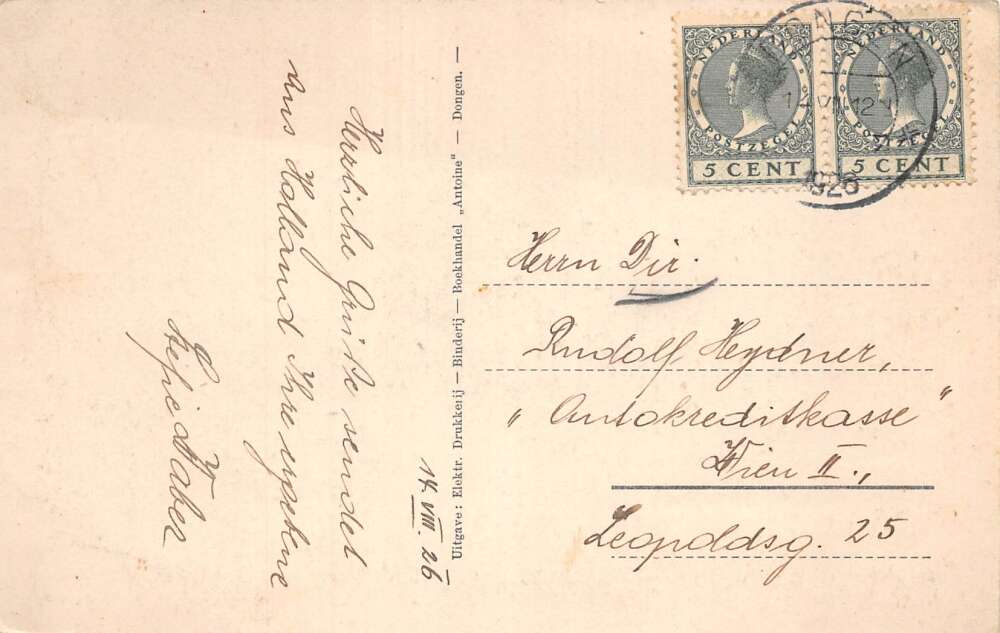 14. VIII. 26
Herzliche Grüße sendet
aus Holland Ihre ergebene
Faber
Uitgave: Elektr. Drukkerij — Binderij — Boekhandel „Antoine" — Dongen. —
NEDERLAND
POSTZEGEL
5 CENT
NEDERLAND
POSTZEGEL
5 CENT
DONGEN
1926
Herrn Dir.
Rudolf Heydner,
„Autokreditkasse"
Wien II.,
Leopoldsg. 25